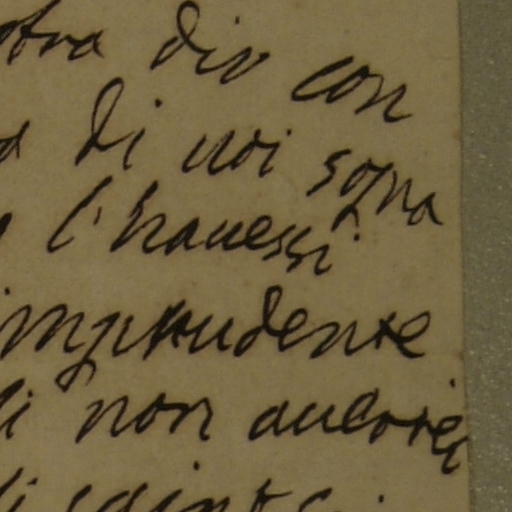 ostra dir con
di noi sopra
l'havessi
imprudente
di non averei